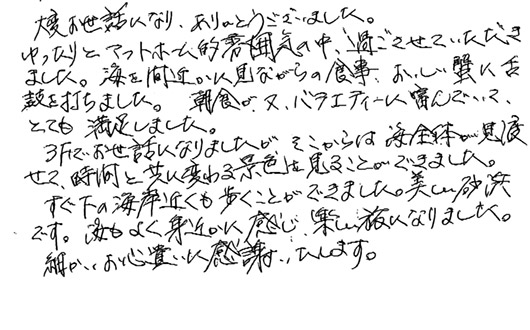 大変お世話になり、ありがとうございました。
ゆったりとアットホーム的雰囲気の中、過ごさせていただき
ました。海を間近かに見ながらの食事、おいしい蟹に舌
鼓を打ちました。朝食が、又、バラエティーに富んでいて、
とても満足しました。
3Fでお世話になりましたが、そこからは海全体が見渡
せて、時間と共に変わる景色を見ることができました。
すぐ下の海岸近くも歩くことができました。美しい砂浜
です。海もよく身近かに感じ、楽しい旅になりました。
細かいお心遣いに感謝いたします。